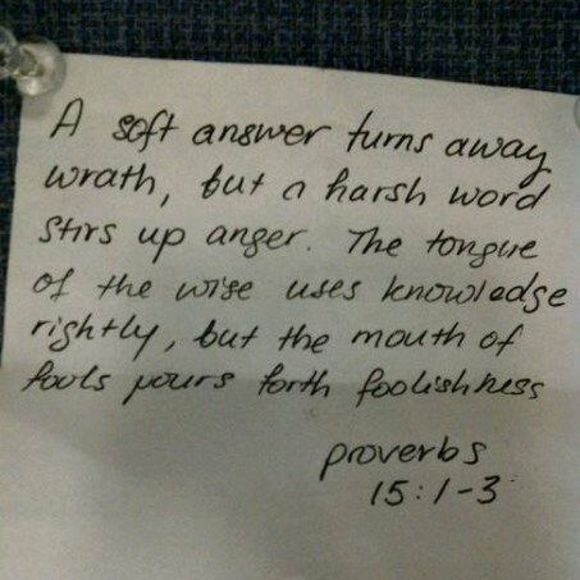 A soft answer turns away
wrath, but a harsh word
stirs up anger. The tongue
of the wise uses knowledge
rightly, but the mouth of
fools pours forth foolishness
proverbs
15:1-3